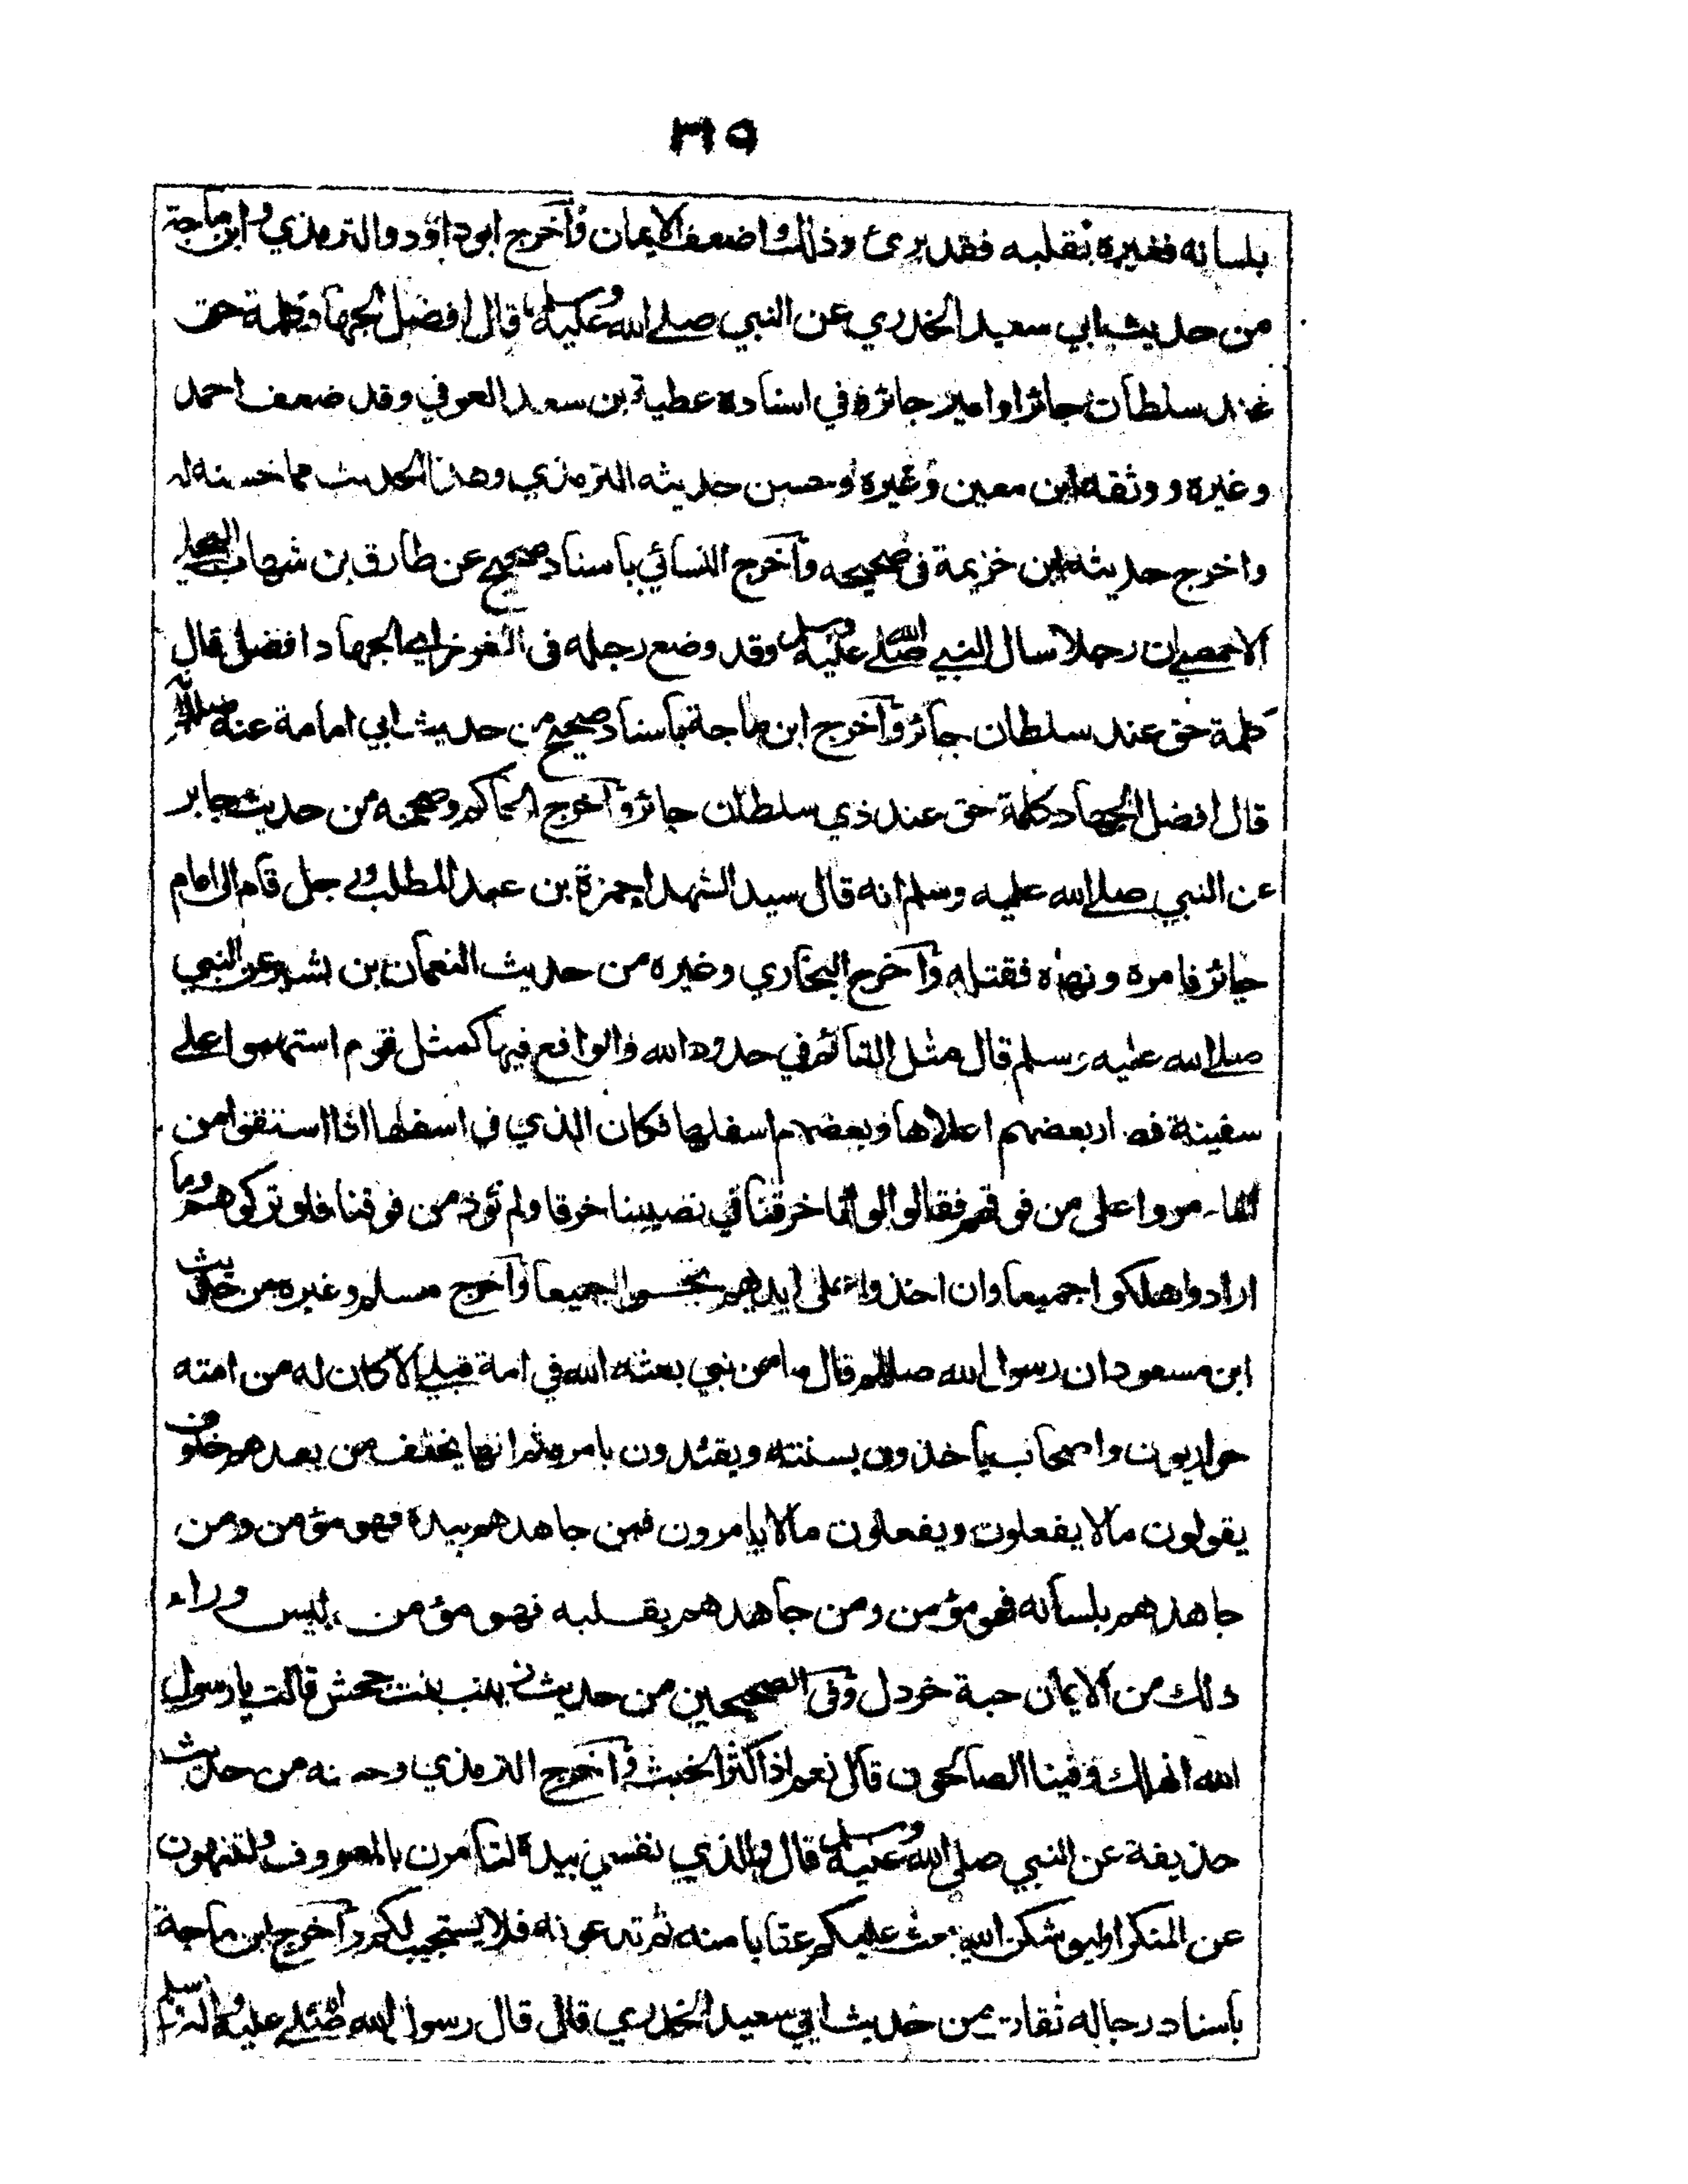 ٣٦٥
بلسانه فغيره بقلبه فقد برئ وذلك اضعف الايمان وآخرج ابوداؤد والترمذي وابن ماجة
من حديث ابي سعيد الخدري عن النبي صلے الله عليه وسلم قال افضل الجهاد كلمة حق
عند سلطان جائر او امير جائر وفي اسناده عطية بن سعد العوفي وقد ضعف احمد
وغيره ووثقه ابن معين وغيره وحسن حديثه الترمذي وهذا الحديث مما حسنه له
واخرج حديثه ابن خزيمة في صحيحه وآخرج النسائي باسناد صحيح عن طارق بن شهاب البجلي
الاحمسي ان رجلا سال النبي صلے الله عليه وسلم وقد وضع رجله في الغرز اي الجهاد افضل قال
كلمة حق عند سلطان جائر وآخرج ابن ماجة باسناد صحيح من حديث ابي امامة عنه صللم
قال افضل الجهاد كلمة حق عند ذي سلطان جائر وآخرج الحاكم وصححه من حديث جابر
عن النبي صلے الله عليه وسلم انه قال سيد الشهداء حمزة بن عبد المطلب ورجل قام الى امام
جائر فامره ونهاه فقتله وآخرج البخاري وغيره من حديث النعمان بن بشير عن النبي
صلے الله عليه وسلم قال مثل القائم في حدود الله والواقع فيها كمثل قوم استهموا علے
سفينة فصار بعضهم اعلاها وبعضهم اسفلها فكان الذي في اسفلها اذا استقوا من
الماء مروا على من فوقهم فقالوا لو انا خرقنا في نصيبنا خرقا ولم نؤذ من فوقنا فلو تركوهم وما
ارادوا هلكوا جميعا وان اخذوا على ايديهم نجوا جميعا وآخرج مسلم وغيره من حديث
ابن مسعود ان رسول الله صللم قال ما من نبي بعثه الله في امة قبلي الا كان له من امته
حواريون واصحاب ياخذون بسنته ويقتدون بامره ثم انها يخلف من بعدهم خلوف
يقولون مالا يفعلون ويفعلون مالا يامرون فمن جاهدهم بيده فهو مؤمن ومن
جاهدهم بلسانه فهو مؤمن ومن جاهدهم بقلبه فهو مؤمن ليس وراء
ذلك من الايمان حبة خردل وفي الصحيحين من حديث زينب بنت جحش قالت يا رسول
الله انهلك وفينا الصالحون قال نعم اذا كثر الخبث وآخرج الترمذي وحسنه من حديث
حذيفة عن النبي صلى الله عليه وسلم قال والذي نفسي بيده لتامرن بالمعروف ولتنهون
عن المنكر او ليوشكن الله يبعث عليكم عقابا منه ثم تدعونه فلا يستجيب لكم وآخرج ابن ماجة
باسناد رجاله ثقات من حديث ابي سعيد الخدري قال قال رسول الله صلے الله عليه واله وسلم